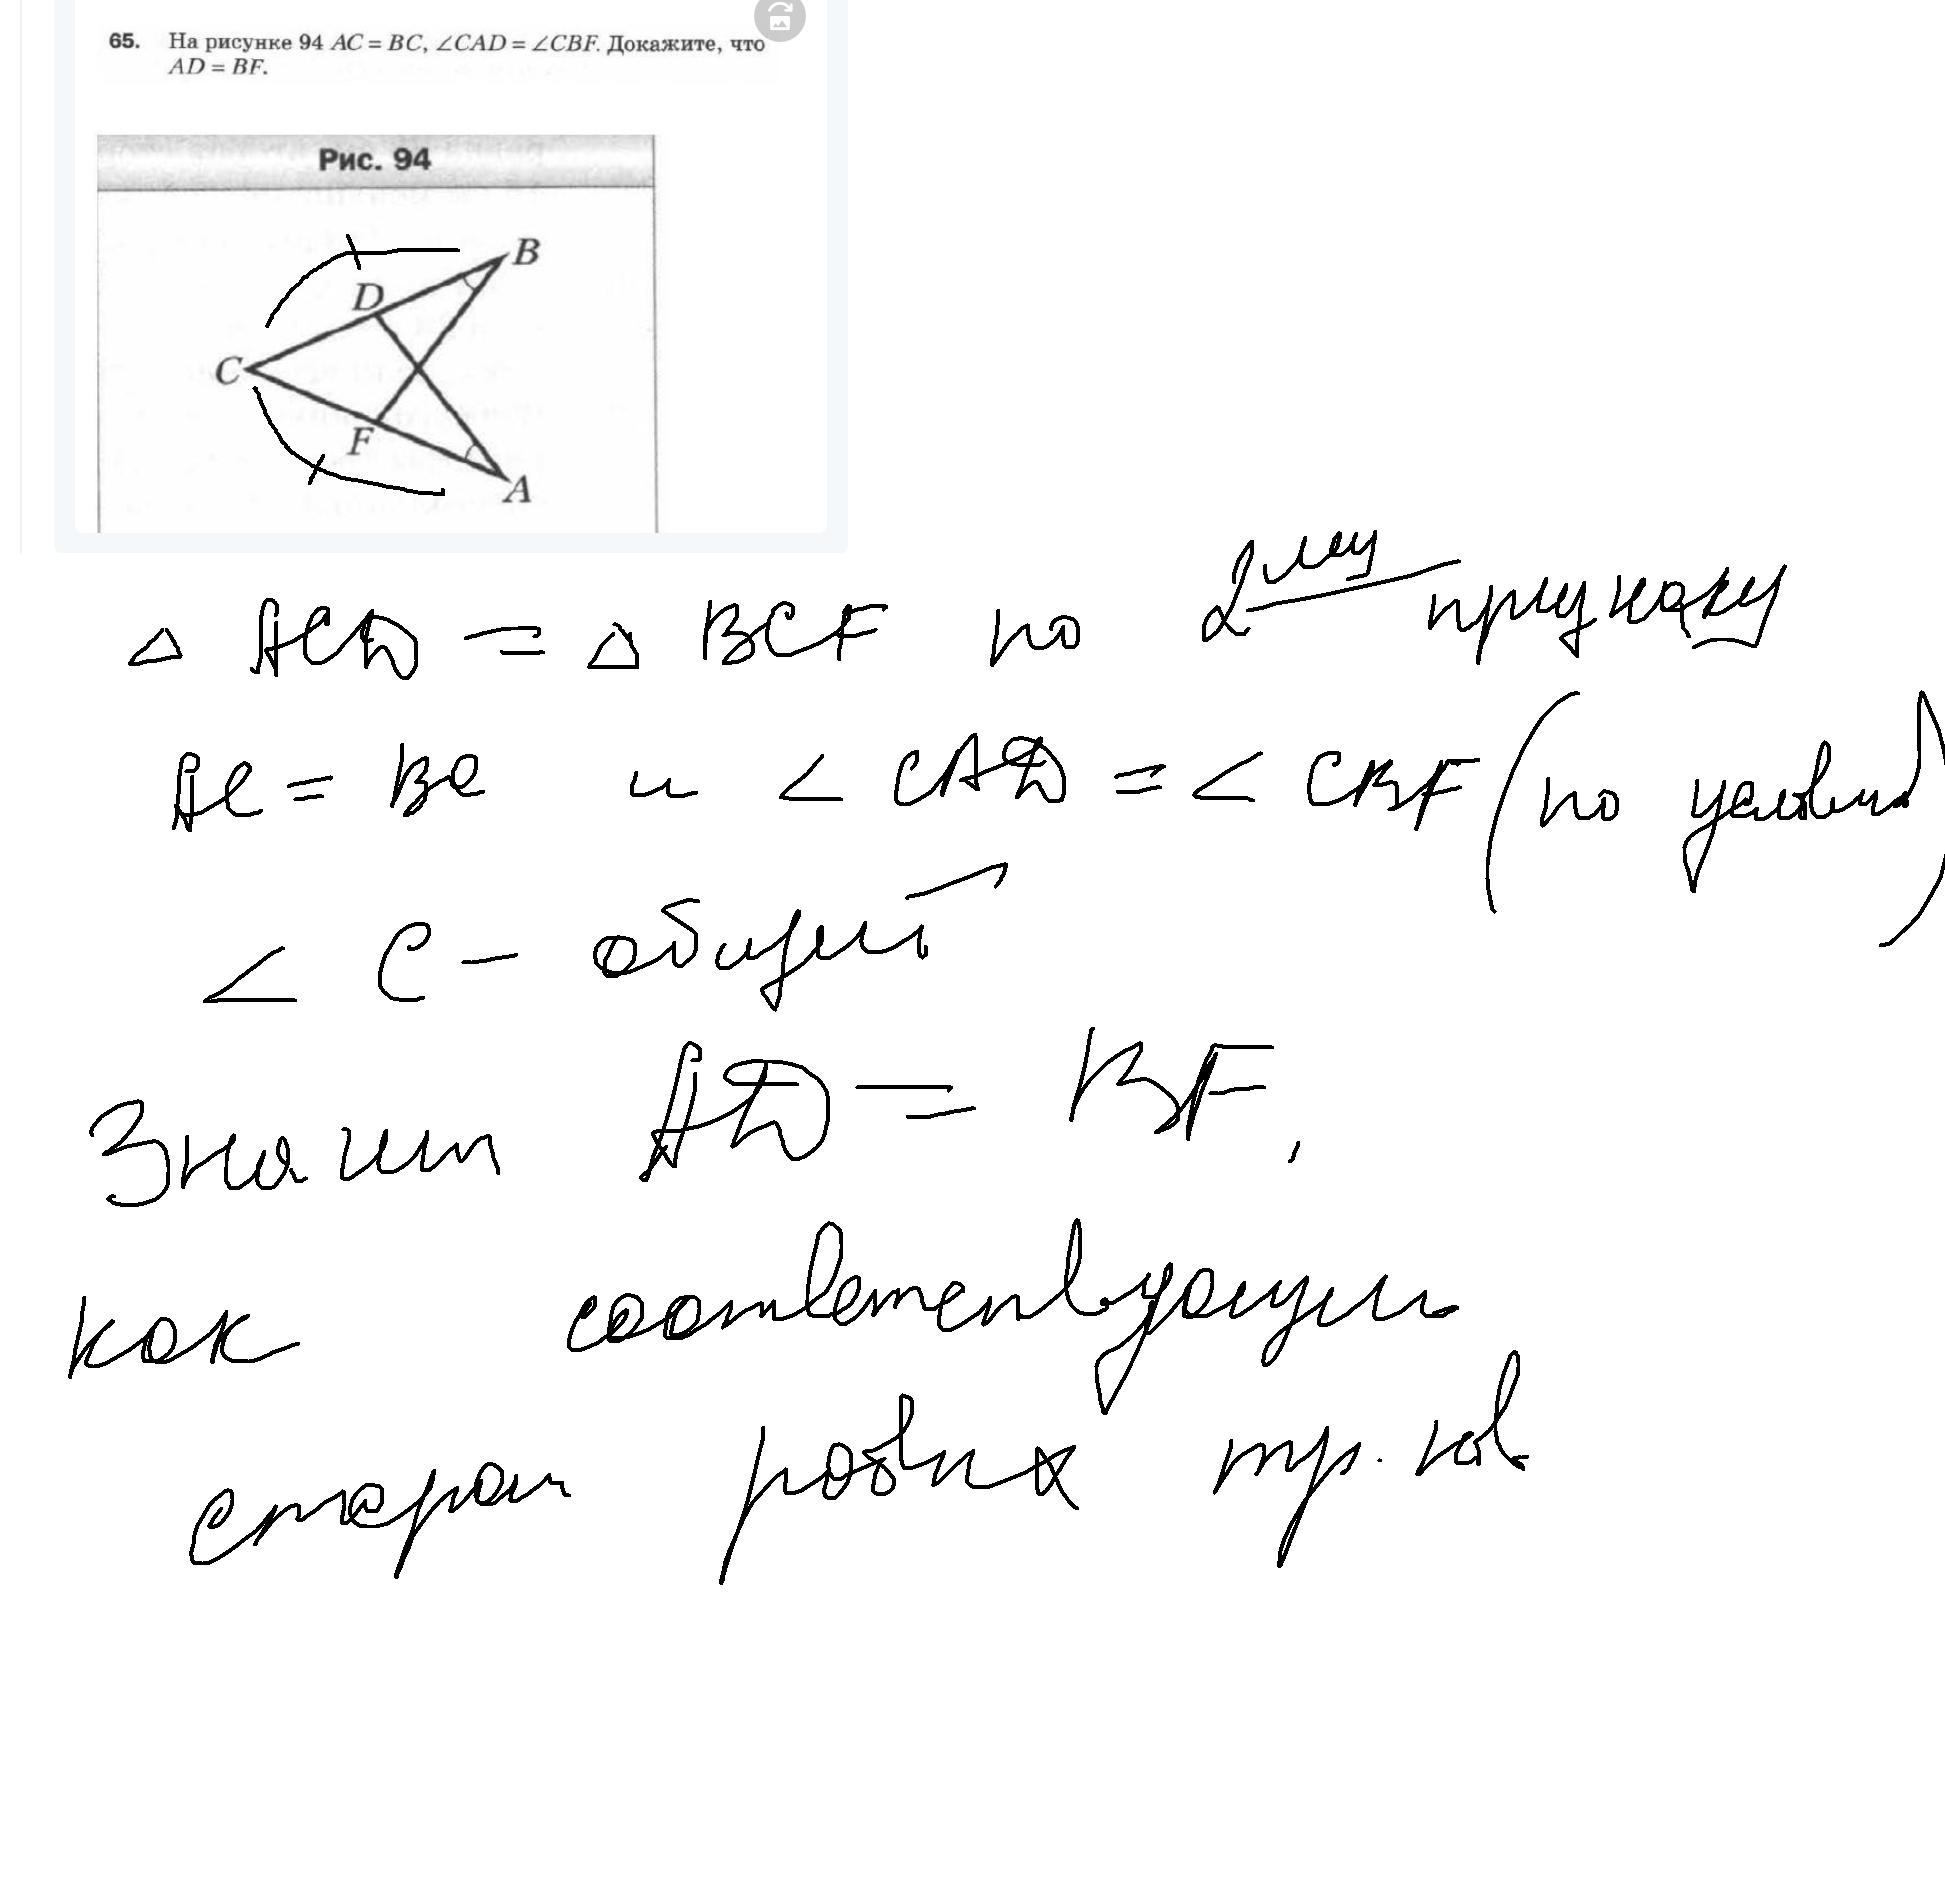 65. На рисунке 94 AC = BC, ∠CAD = ∠CBF. Докажите, что
AD = BF.
Рис. 94
B
D
C
F
A
△ ACD = △ BCF по 2му признаку
AC = BC и ∠ CAD = ∠ CBF (по условию)
∠ C - общий
Значит AD = BF,
как соответствующие
сторон равных тр. ков